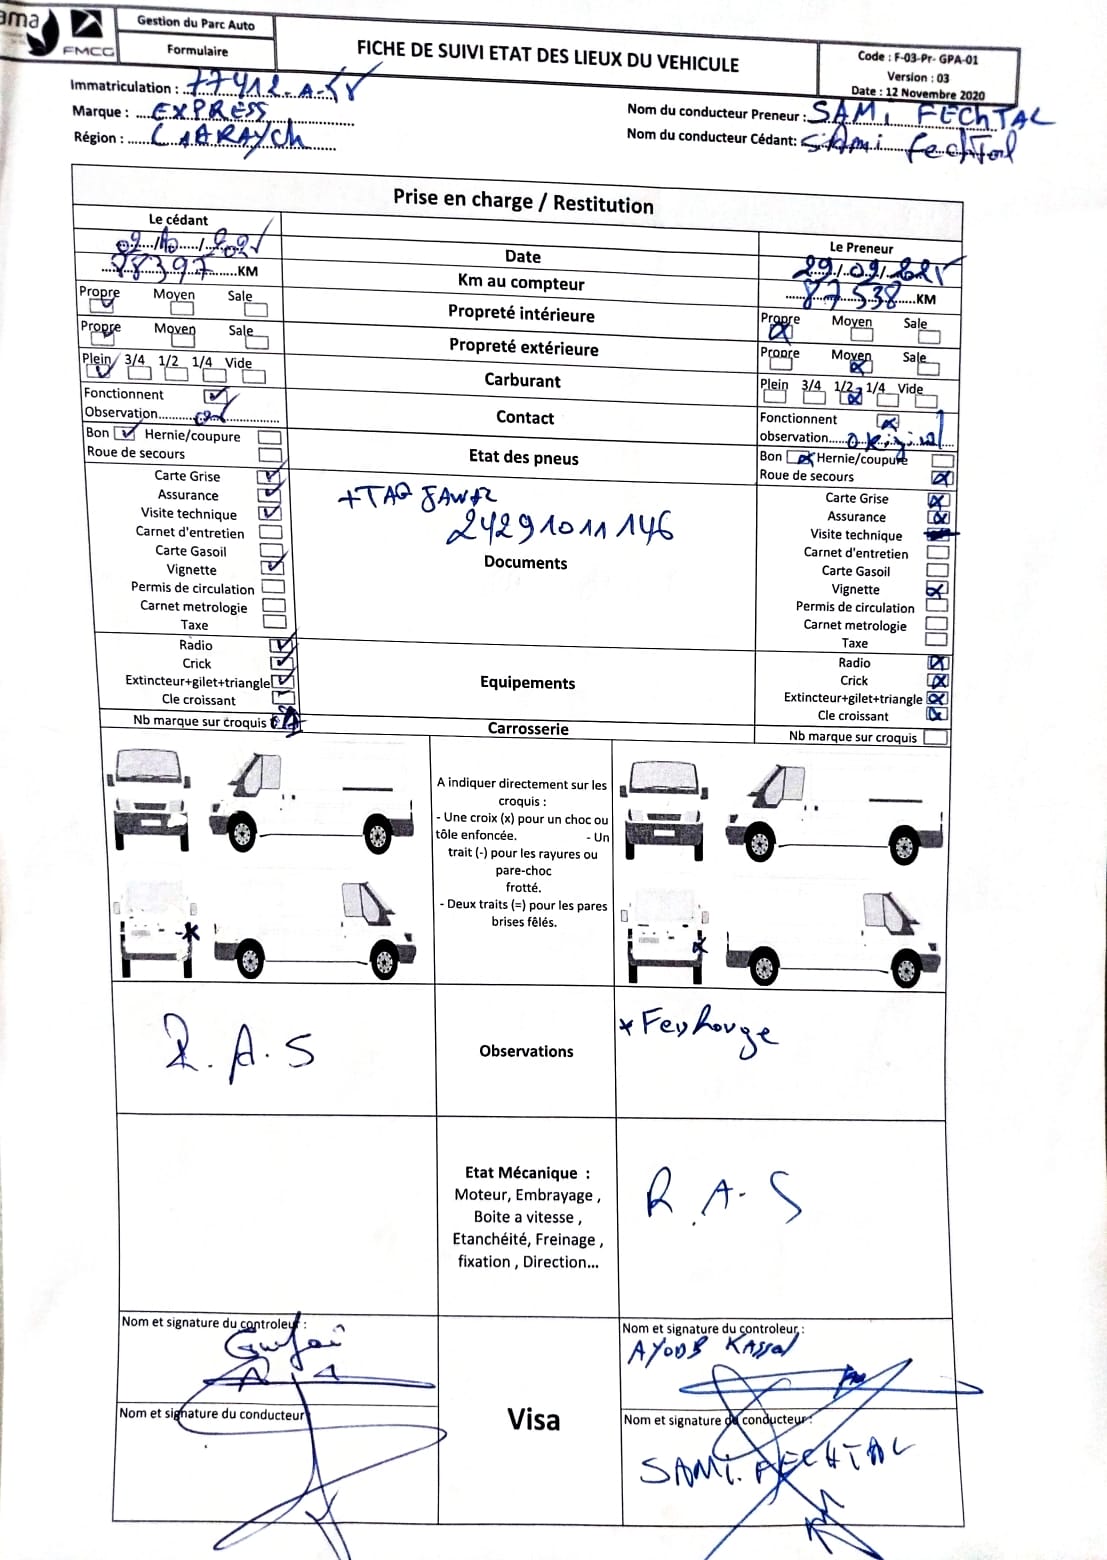 ama
FMCG
Gestion du Parc Auto
Formulaire
FICHE DE SUIVI ETAT DES LIEUX DU VEHICULE
Code : F-03-Pr- GPA-01
Version : 03
Date : 12 Novembre 2020
Immatriculation : 77412-A-
Marque : EXPRESS
Région : LAARAYCh
Nom du conducteur Preneur : SAMi FEChTAL
Nom du conducteur Cédant: SAmi
Prise en charge / Restitution
Le cédant
Le Preneur
02/10/2025
Date
29/09/2025
88397 KM
Km au compteur
87538 KM
Propre Moyen Sale
Propreté intérieure
Propre Moyen Sale
Propre Moyen Sale
Propreté extérieure
Propre Moyen Sale
Plein 3/4 1/2 1/4 Vide
Carburant
Plein 3/4 1/2 1/4 Vide
Fonctionnent
Observation
Contact
Fonctionnent
observation original
Bon Hernie/coupure
Roue de secours
Etat des pneus
Bon Hernie/coupure
Roue de secours
Carte Grise
Assurance
Visite technique
Carnet d'entretien
Carte Gasoil
Vignette
Permis de circulation
Carnet metrologie
Taxe
+TAG JAWAZ
24291011146
Documents
Carte Grise
Assurance
Visite technique
Carnet d'entretien
Carte Gasoil
Vignette
Permis de circulation
Carnet metrologie
Taxe
Radio
Crick
Extincteur+gilet+triangle
Cle croissant
Equipements
Radio
Crick
Extincteur+gilet+triangle
Cle croissant
Nb marque sur croquis
Carrosserie
Nb marque sur croquis
A indiquer directement sur les
croquis :
- Une croix (x) pour un choc ou
tôle enfoncée. - Un
trait (-) pour les rayures ou
pare-choc
frotté.
- Deux traits (=) pour les pares
brises fêlés.
R.A.S
Observations
* Feu Rouge
Etat Mécanique :
Moteur, Embrayage ,
Boite a vitesse ,
Etanchéité, Freinage ,
fixation , Direction...
R.A.S
Nom et signature du controleur :
Nom et signature du controleur :
AYOUB KASSAL
Nom et signature du conducteur
Visa
Nom et signature du conducteur :
SAMi FECHTAL